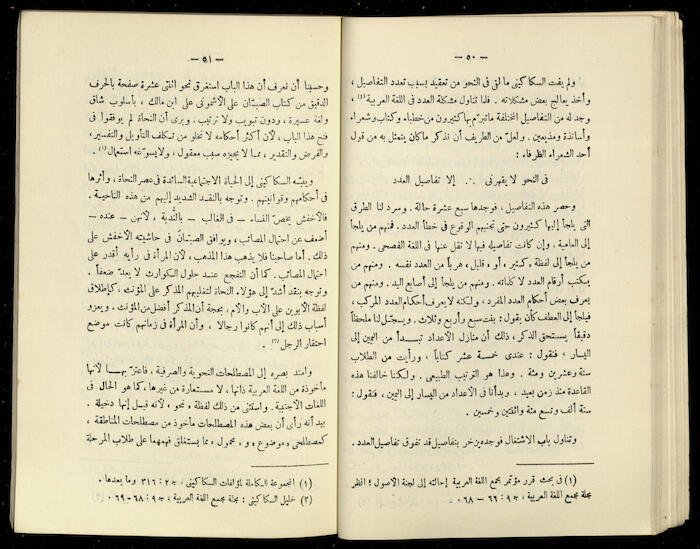 — ٥٠ —
ولم يفت السكاكيني ما لقي في النحو من تعقيد بسبب تعدد التفاصيل ،
وأخذ يعالج بعض مشكلاته . فلما تناول مشكلة العدد في اللغة العربية (١) ،
وجد له من التفاصيل المختلفة ما تبرّم بها كثيرون من خطباء وكتاب وشعراء
وأساتذة ومذيعين . ولعلّ من الطريف أن نذكر ما كان يتمثل به من قول
أحد الشعراء الظرفاء :
في النحو لا يقهرني ∴ إلا تفاصيل العدد
وحصر هذه التفاصيل ، فوجدها سبع عشرة حالة . وسرد لنا الطرق
التي يلجأ إليها كثيرون حتى تجنبهم الوقوع في خطأ العدد . فمنهم من يلجأ
إلى العامية ، وإن كانت تفاصيله فيها لا تقل عنها في اللغة الفصحى . ومنهم
من يلجأ إلى لفظة ، كثير ، أو ، قليل ، هرباً من العدد نفسه . ومنهم من
يكتب أرقام العدد لا كلماته . ومنهم من يلجأ إلى أصابع اليد . ومنهم من
يعرف بعض أحكام العدد المفرد ، ولكنه لا يعرف أحكام العدد المركب ،
فيلجأ إلى العطف كأن يقول : بقت سبع وأربع وثلاث . ويسجّل لنا ملحظاً
دقيقاً يستحق الذكر ، ذلك أن منازل الأعداد تبـدأ من اليمين إلى
اليسار ، فنقول : عندي خمسة عشر كتاباً ، ورأيت من الطلاب
ستة وعشرين ومئة . وهذا هو الترتيب الطبيعي . ولكننا خالفنا هذه
القاعدة منذ زمن بعيد ، وبدأنا في الأعداد من اليسار إلى اليمين ، فنقول :
سنة ألف وتسع مئة واثنتين وخمسين .
وتناول باب الاشتغال فوجده يزخر بتفاصيل قد تفوق تفاصيل العدد .
(١) في بحث قرر مؤتمر مجمع اللغة العربية إحالته إلى لجنة الاصول ! انظر
مجلة مجمع اللغة العربية ، ج ٩ : ٦٦ – ٦٨ .
— ٥١ —
وحسبنا أن نعرف أن هذا الباب استغرق نحو اثنتي عشرة صفحة بالحرف
الدقيق من كتاب الصبّان على الأشموني على ابن مالك ، بأسلوب شاق
ولغة عسيرة ، ودون تبويب ولا ترتيب . ويرى أن النحاة لم يوفقوا في
فتح هذا الباب ، لأن أكثر أحكامه لا تخلو من تكلف التأويل والتفسير ،
والفرض والتقدير ، ممـا لا يجيزه سبب معقول ، ولا يسوّغه استعمال (١) .
وينبّه السكاكيني إلى الحياة الاجتماعية السائدة في عصر النحاة ، وأثرها
في أحكامهم وقوانينهم . وتوجه بالنقـد الشديد إليهم من هذه الناحيـة .
فالأخفش يخصّ النساء ــ في الغالب ــ بالنُّدبة ، لأنهن ــ عنده ــ
أضعف عن احتمال المصائب ، ويوافق الصبّان في حاشيته الأخفش على
ذلك . أما صاحبنا فلا يذهب هذا المذهب ، لأن المرأة في رأيه أقدر على
احتمال المصائب . كما أن التفجع عنـد حلول الكوارث لا يعدّ ضعفاً .
وتوجه بنقد أشدّ إلى هؤلاء النحاة لتغليبهم المذكر على المؤنث ، كإطلاق
لفظة الأبوين على الأب والأم ، بحجة أن المذكر أفضل من المؤنث . ويعزو
أسباب ذلك إلى أنهم كانوا رجالا ، وأن المرأة في زمانهم كانت موضع
احتقار الرجل (٢) .
وامتد بصره إلى المصطلحات النحوية والصرفية ، فاعتزّ بهـا لأنها
مأخوذة من اللغة العربية ذاتها ، لا مستعارة من غيرها ، كما هو الحال في
اللغات الأجنبية . واستثنى من ذلك لفظة ، نحو ، لأنه قيـل إنها دخيلة .
بيد أنه رأى أن بعض هذه المصطلحات مأخوذ من مصطلحات المناطقة ،
كمصطلحي ، موضوع ، و ، محمول ، مما يستغلق فهمهما على طلاب المرحلة
(١) المجموعة الكاملة لمؤلفات السكاكيني ، ج ٢ : ٣١٦ وما بعدها .
(٢) خليل السكاكيني : مجلة مجمع اللغة العربية ، ج ٩ : ٦٨ – ٦٩ .